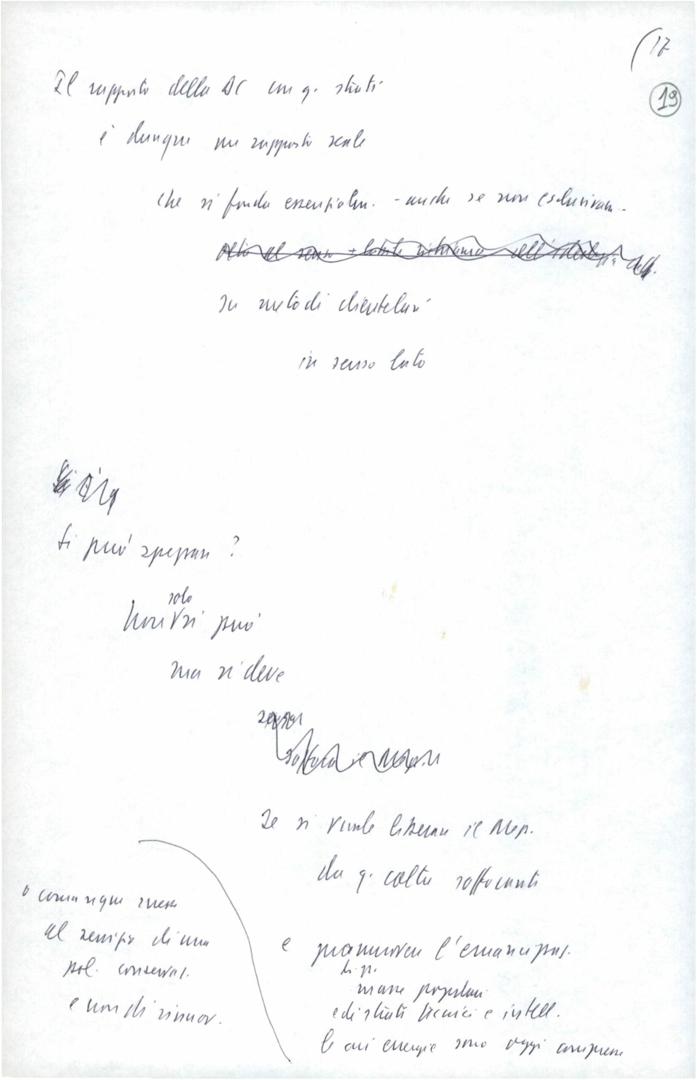 17
19
Il rapporto della DC con q. strati
è dunque un rapporto reale
che si fonda essenzialm. - anche se non esclusivam. -
su metodi clientelari
in senso lato
Si può spezzare ?
solo
Non si può
ma si deve
Se si vuole liberare il Mer.
da q. coltre soffocante
e promuovere l'emancipaz.
di q.
masse popolari
e di strati tecnici e intell.
le cui energie sono oggi compresse
o comunque messe
al servizio di una
pol. conservat.
e non di rinnov.